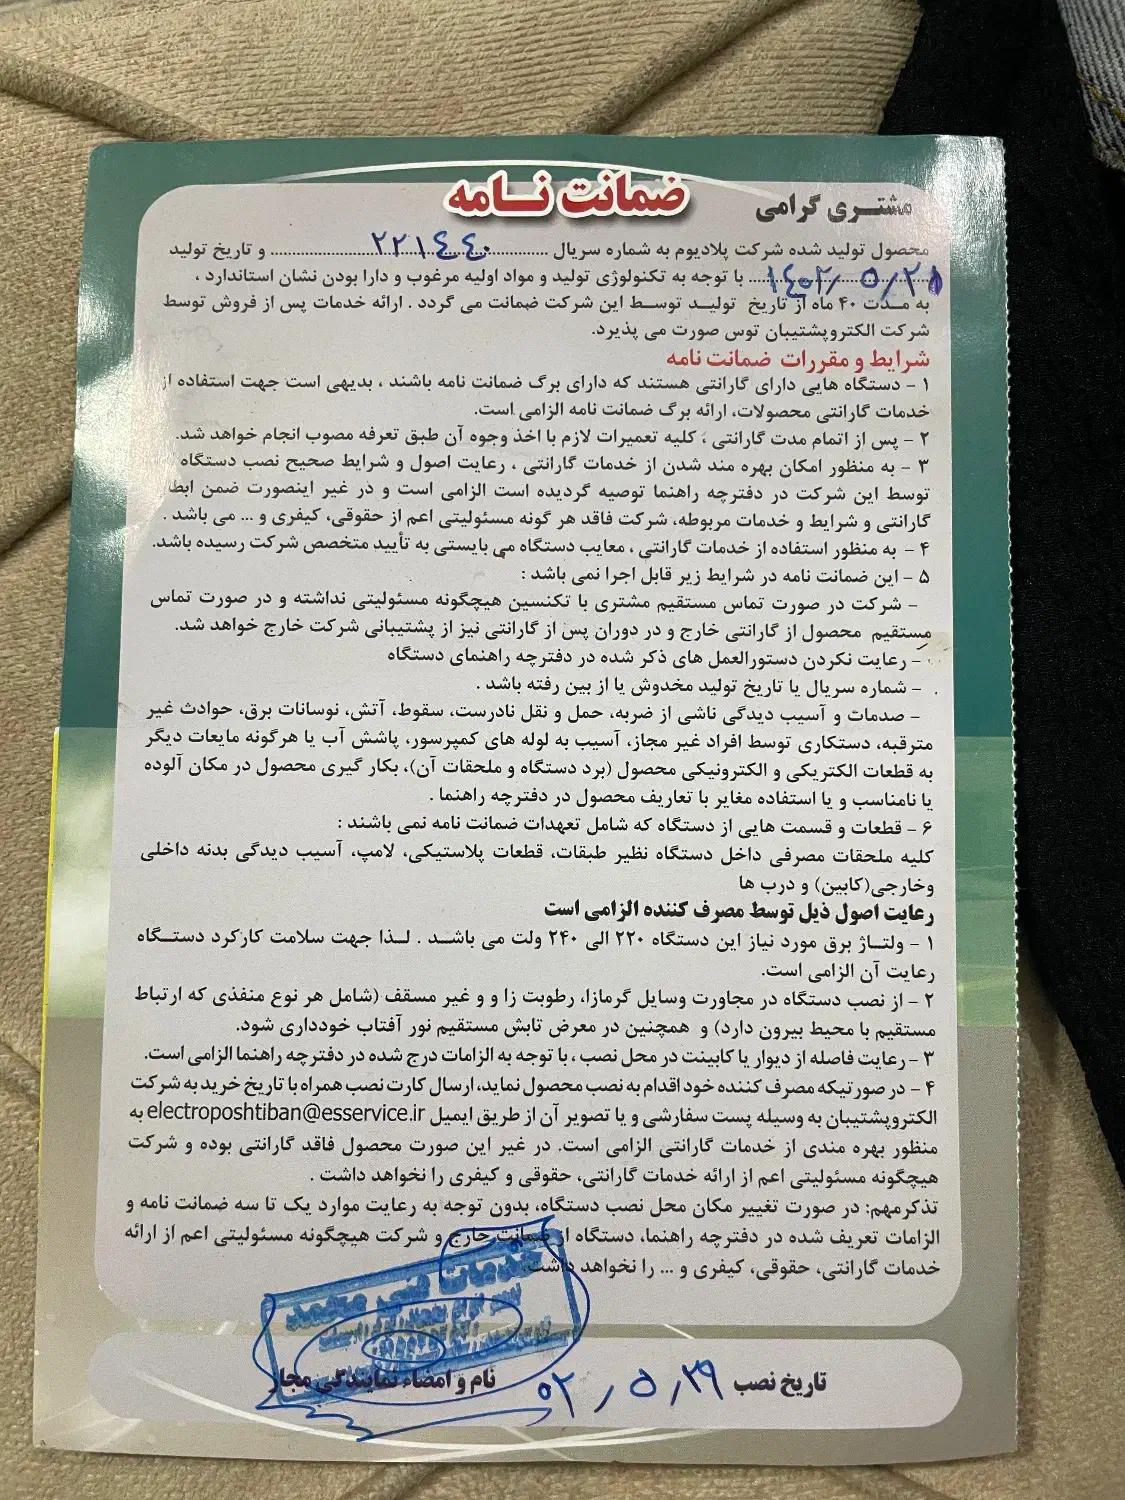 ضمانت نـــامه
مشتـــری گرامی
محصول تولید شده شرکت پلادیوم به شماره سریال ....... ۲۲۱٤٤۰ ....... و تاریخ تولید
....... ۱٤۰۲/۰۵/۲۱ ....... با توجه به تکنولوژی تولید و مواد اولیه مرغوب و دارا بودن نشان استاندارد ،
به مـدت ۴۰ ماه از تاریخ تولیـد توسـط این شرکت ضمانت می گردد . ارائه خدمات پس از فروش توسط
شرکت الکتروپشتیبان توس صورت می پذیرد.
شرایط و مقررات ضمانت نامه
۱ - دستگاه هایی دارای گارانتی هستند که دارای برگ ضمانت نامه باشند ، بدیهی است جهت استفاده از
خدمات گارانتی محصولات، ارائه برگ ضمانت نامه الزامی است.
۲ - پس از اتمام مدت گارانتی ، کلیه تعمیرات لازم با اخذ وجوه آن طبق تعرفه مصوب انجام خواهد شد.
۳ - به منظور امکان بهره مند شدن از خدمات گارانتی ، رعایت اصول و شرایط صحیح نصب دستگاه
توسط این شرکت در دفترچه راهنما توصیه گردیده است الزامی است و در غیر اینصورت ضمن ابطا
گارانتی و شرایط و خدمات مربوطه، شرکت فاقد هر گونه مسئولیتی اعم از حقوقی، کیفری و ... می باشد .
۴ - به منظور استفاده از خدمات گارانتی ، معایب دستگاه می بایستی به تأیید متخصص شرکت رسیده باشد.
۵ - این ضمانت نامه در شرایط زیر قابل اجرا نمی باشد :
- شرکت در صورت تماس مستقیم مشتری با تکنسین هیچگونه مسئولیتی نداشته و در صورت تماس
مستقیم محصول از گارانتی خارج و در دوران پس از گارانتی نیز از پشتیبانی شرکت خارج خواهد شد.
- رعایت نکردن دستورالعمل های ذکر شده در دفترچه راهنمای دستگاه
- شماره سریال یا تاریخ تولید مخدوش یا از بین رفته باشد .
- صدمات و آسیب دیدگی ناشی از ضربه، حمل و نقل نادرست، سقوط، آتش، نوسانات برق، حوادث غیر
مترقبه، دستکاری توسط افراد غیر مجاز، آسیب به لوله های کمپرسور، پاشش آب یا هرگونه مایعات دیگر
به قطعات الکتریکی و الکترونیکی محصول (برد دستگاه و ملحقات آن)، بکار گیری محصول در مکان آلوده
یا نامناسب و یا استفاده مغایر با تعاریف محصول در دفترچه راهنما .
۶ - قطعات و قسمت هایی از دستگاه که شامل تعهدات ضمانت نامه نمی باشند :
کلیه ملحقات مصرفی داخل دستگاه نظیر طبقات، قطعات پلاستیکی، لامپ، آسیب دیدگی بدنه داخلی
وخارجی(کابین) و درب ها
رعایت اصول ذیل توسط مصرف کننده الزامی است
۱ - ولتـاژ برق مورد نیاز این دستگاه ۲۲۰ الی ۲۴۰ ولت می باشـد . لـذا جهت سلامت کارکرد دستـگاه
رعایت آن الزامی است.
۲ - از نصب دستگاه در مجاورت وسایل گرمازا، رطوبت زا و و غیر مسقف (شامل هر نوع منفذی که ارتباط
مستقیم با محیط بیرون دارد) و همچنین در معرض تابش مستقیم نور آفتاب خودداری شود.
۳ - رعایت فاصله از دیوار یا کابینت در محل نصب ، با توجه به الزامات درج شده در دفترچه راهنما الزامی است.
۴ - در صورتیکه مصرف کننده خود اقدام به نصب محصول نماید، ارسال کارت نصب همراه با تاریخ خرید به شرکت
الکتروپشتیبان به وسیله پست سفارشی و یا تصویر آن از طریق ایمیل electroposhtiban@esservice.ir به
منظور بهره مندی از خدمات گارانتی الزامی است. در غیر این صورت محصول فاقد گارانتی بوده و شرکت
هیچگونه مسئولیتی اعم از ارائه خدمات گارانتی، حقوقی و کیفری را نخواهد داشت .
تذکرمهم: در صورت تغییر مکان محل نصب دستگاه، بدون توجه به رعایت موارد یک تا سه ضمانت نامه و
الزامات تعریف شده در دفترچه راهنما، دستگاه از ضمانت خارج و شرکت هیچگونه مسئولیتی اعم از ارائه
خدمات گارانتی، حقوقی، کیفری و ... را نخواهد داشت.
خدمات فنی
تاریخ نصب ۰۲/۵/۲۹
نام و امضاء نمایندگی مجاز